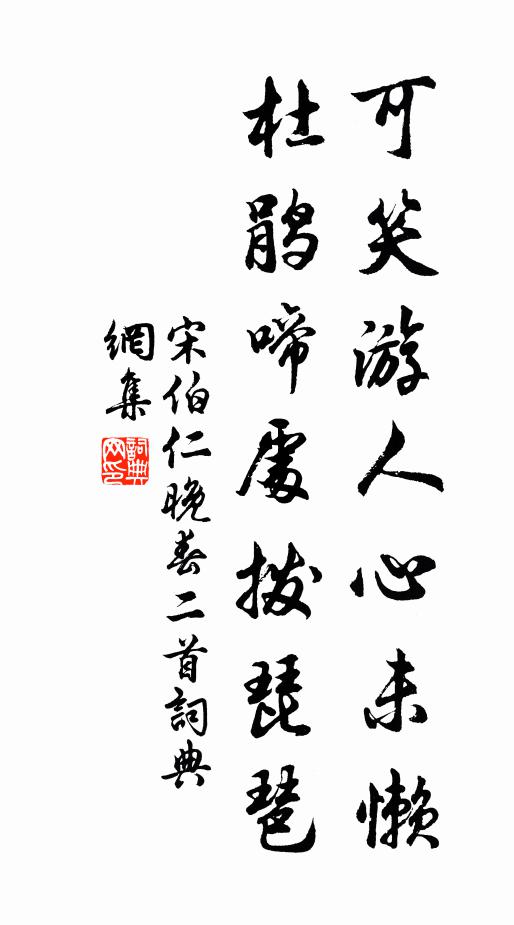 可笑游人心未懒
杜鹃啼處拨琵琶
宋伯仁晚春二首詞典
網集
詞典
网印